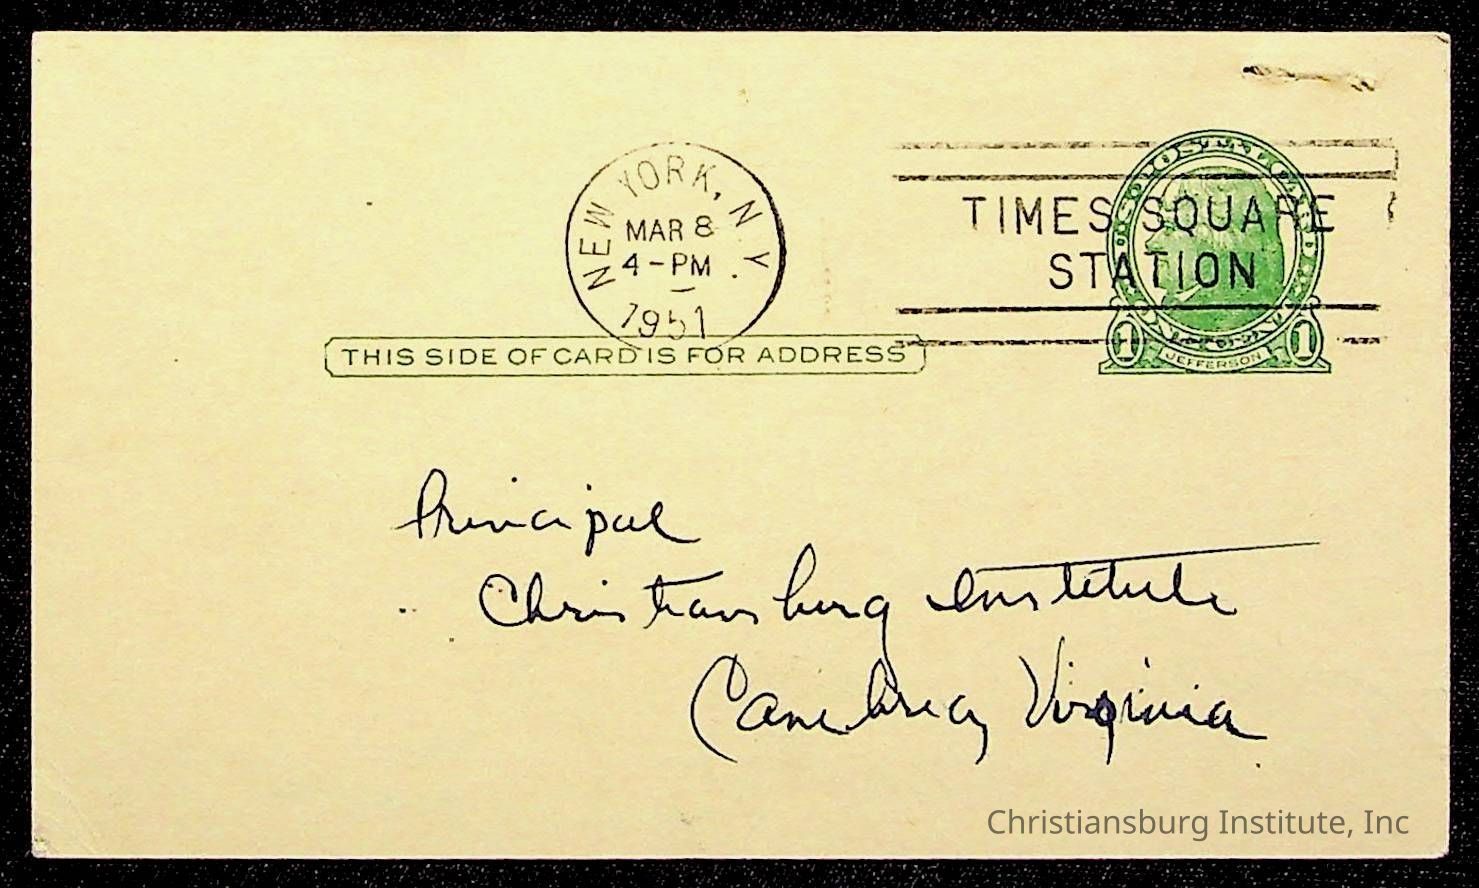 NEW YORK, N.Y.
MAR 8
4-PM
1951
TIMES SQUARE
STATION
1 JEFFERSON 1
THIS SIDE OF CARD IS FOR ADDRESS
Principal
Christiansburg Institute
Cambria, Virginia
Christiansburg Institute, Inc